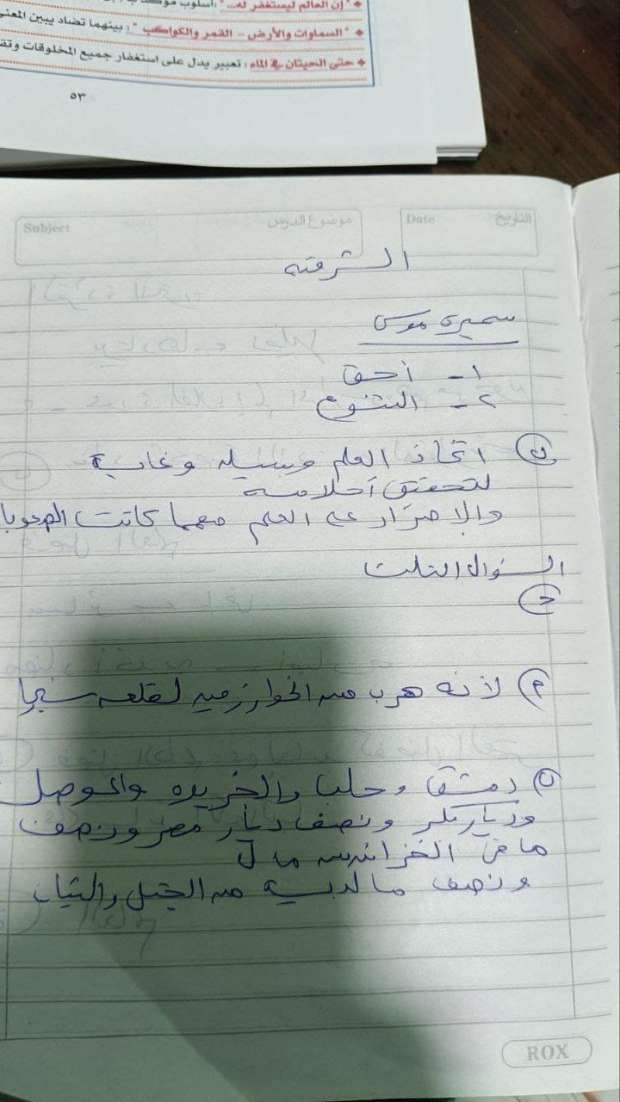 "إن العالم ليستغفر له..." : أسلوب
"السماوات والأرض - القمر والكواكب" : بينهما تضاد يبين المعنى
حتى الحيتان في الماء : تعبير يدل على استغفار جميع المخلوقات
٥٣
Subject موضوع الدرس Date التاريخ
الشرقية
سميرة موسى
١- أحق
٢- التنوع
اتخاذ العلم وسيله وغاية
لتحقيق أحلامه
والاصرار على العلم مهما كانت الصعوبا
السؤال التلت
م) لأنه هرب من الخوارزميه لقلعه سنجا
دمشق وحلب والجزيره والموصل
وديار بكر ونصف ديار مصر ونصف
ما في الخزائن من مال
ونصف ما لديه من الخيل والثياب
ROX